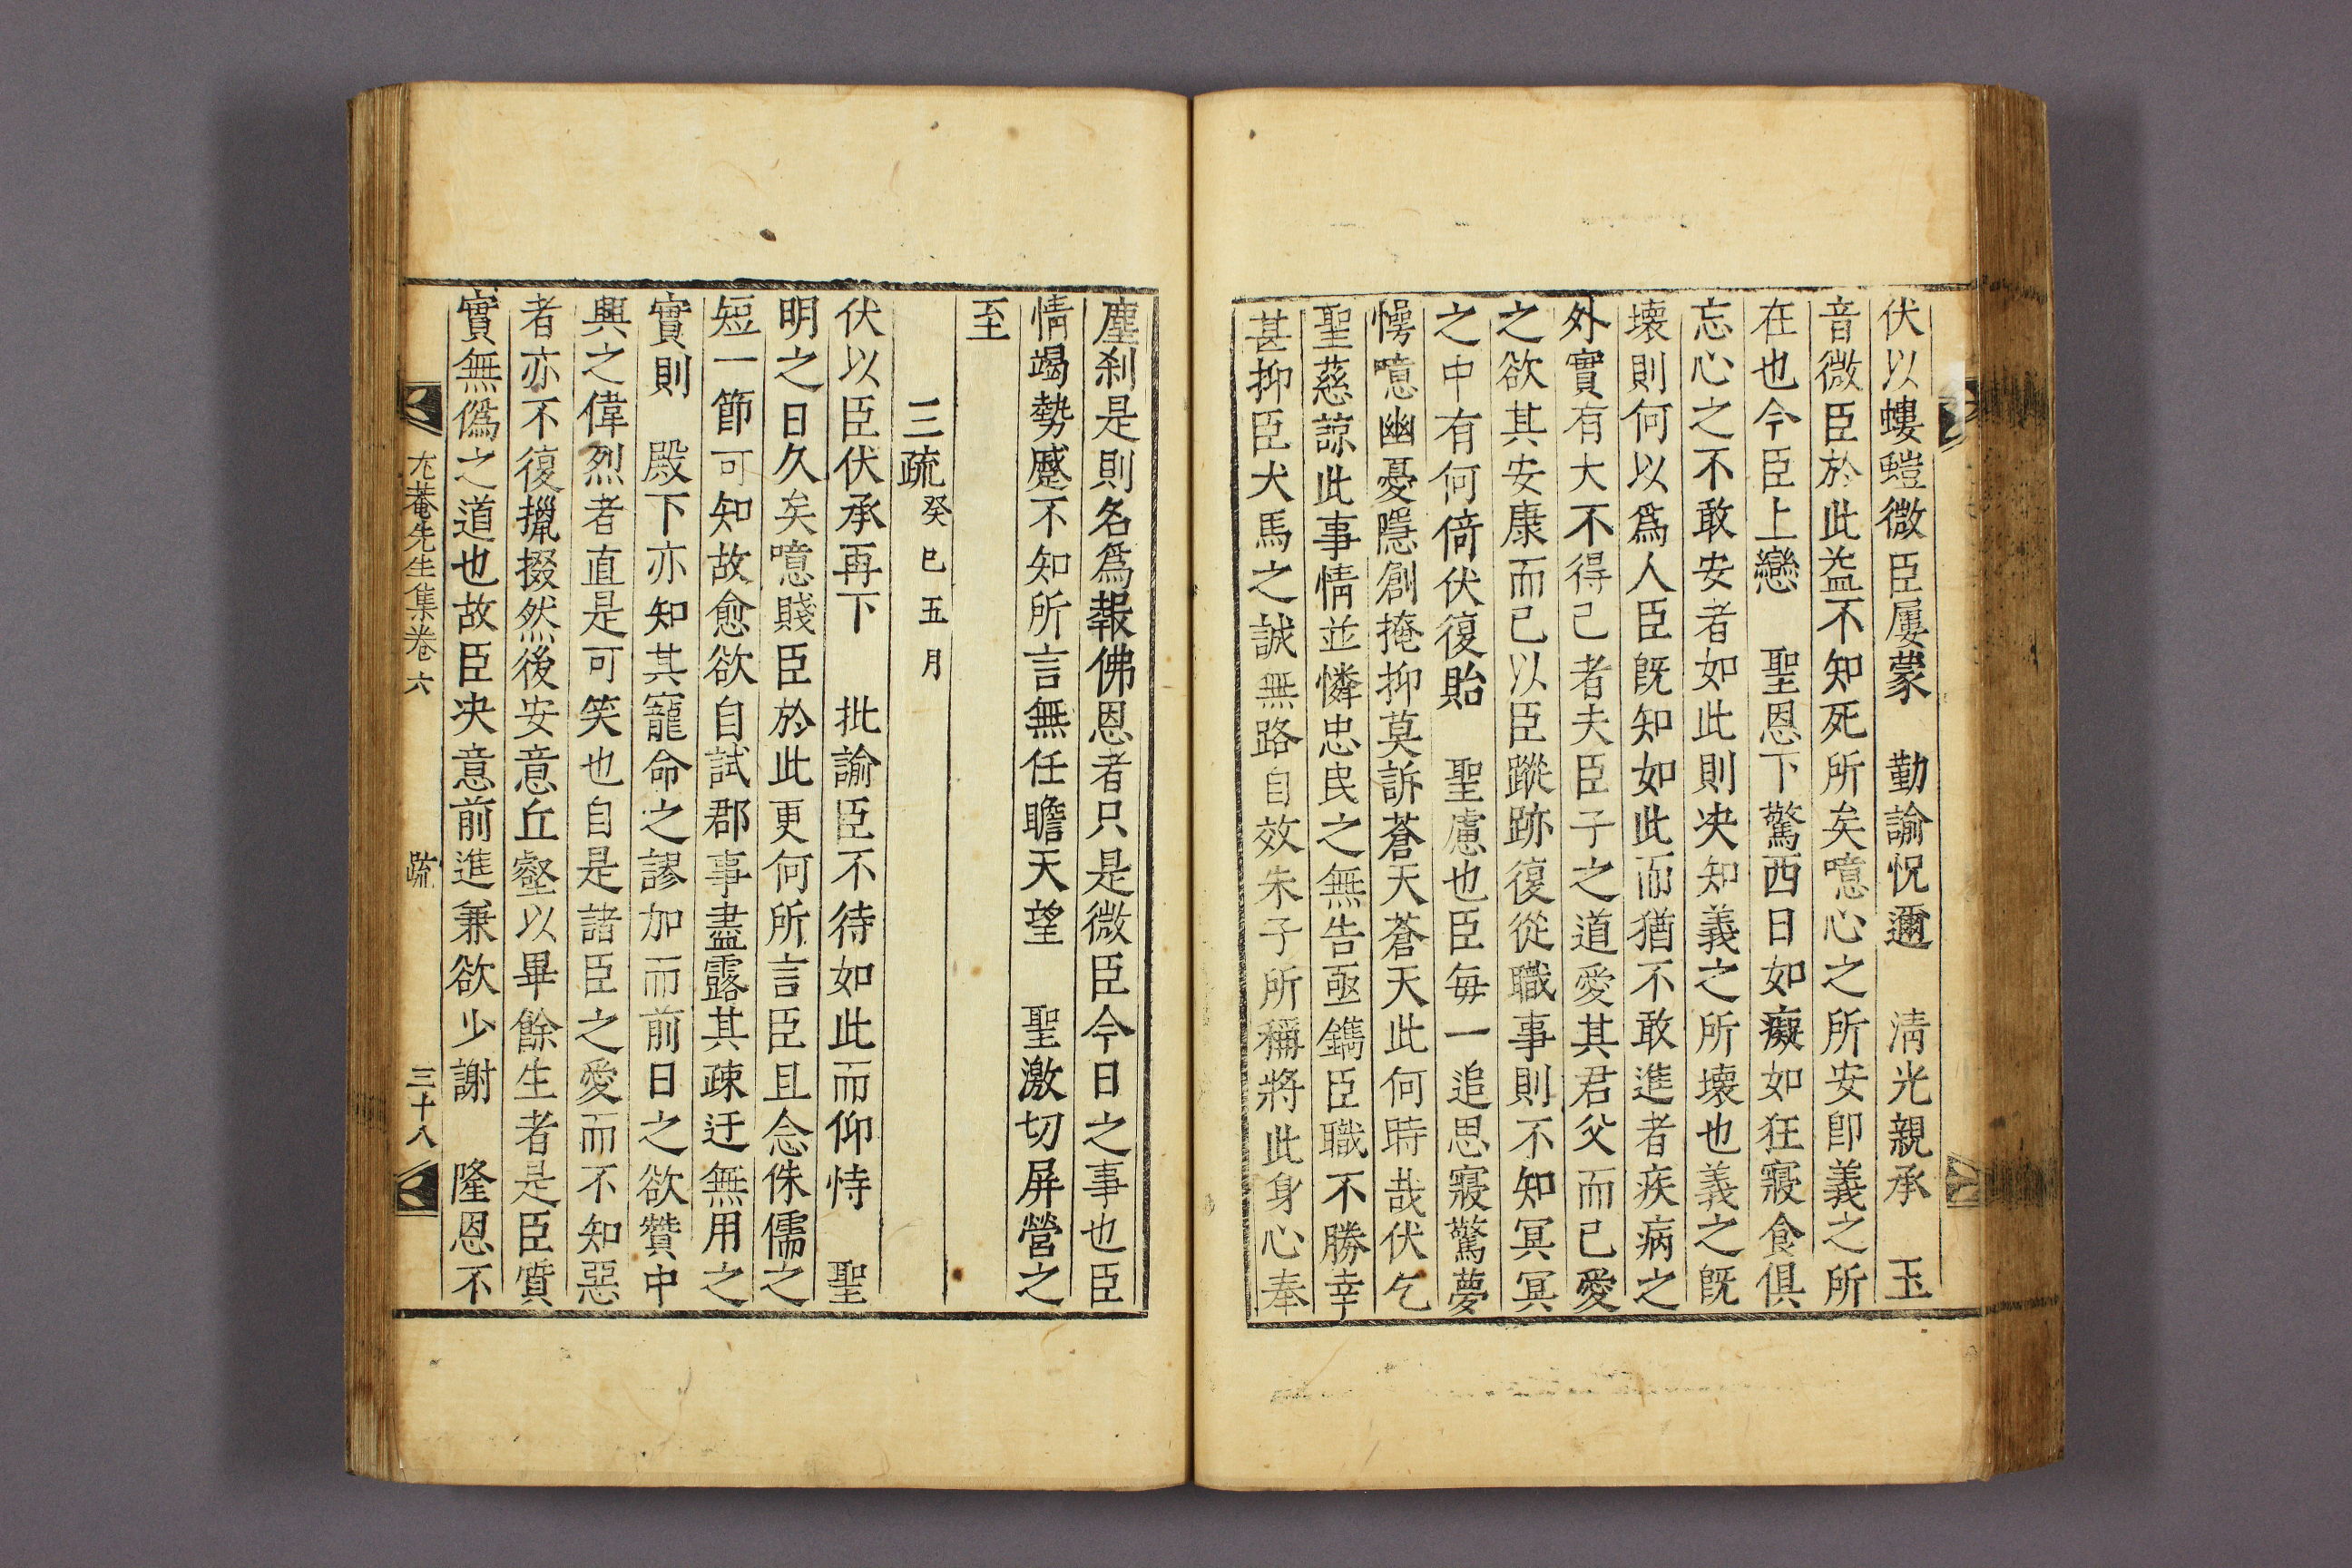 伏以螻螘微臣屢蒙　勤諭怳邇　淸光親承　玉
音微臣於此益不知死所矣噫心之所安卽義之所
在也今臣上戀　聖恩下驚西日如癡如狂寢食俱
忘心之不敢安者如此則决知義之所壞也義之旣
壞則何以爲人臣旣知如此而猶不敢進者疾病之
外實有大不得已者夫臣子之道愛其君父而已愛
之欲其安康而已以臣蹤跡復從職事則不知冥冥
之中有何倚伏復貽　聖慮也臣每一追思寢驚夢
愕噫幽憂隱創掩抑莫訴蒼天蒼天此何時哉伏乞
聖慈諒此事情並憐忠民之無告亟鐫臣職不勝幸
甚抑臣犬馬之誠無路自效朱子所稱將此身心奉
塵刹是則名爲報佛恩者只是微臣今日之事也臣
情竭勢蹙不知所言無任瞻天望　聖激切屏營之
至
三疏癸巳五月
伏以臣伏承再下　批諭臣不待如此而仰恃　聖
明之日久矣噫賤臣於此更何所言臣且念侏儒之
短一節可知故愈欲自試郡事盡露其疎迂無用之
實則　殿下亦知其寵命之謬加而前日之欲贊中
興之偉烈者直是可笑也自是諸臣之愛而不知惡
者亦不復擸掇然後安意丘壑以畢餘生者是臣質
實無僞之道也故臣决意前進兼欲少謝　隆恩不
尤菴先生集卷六　疏　三十八